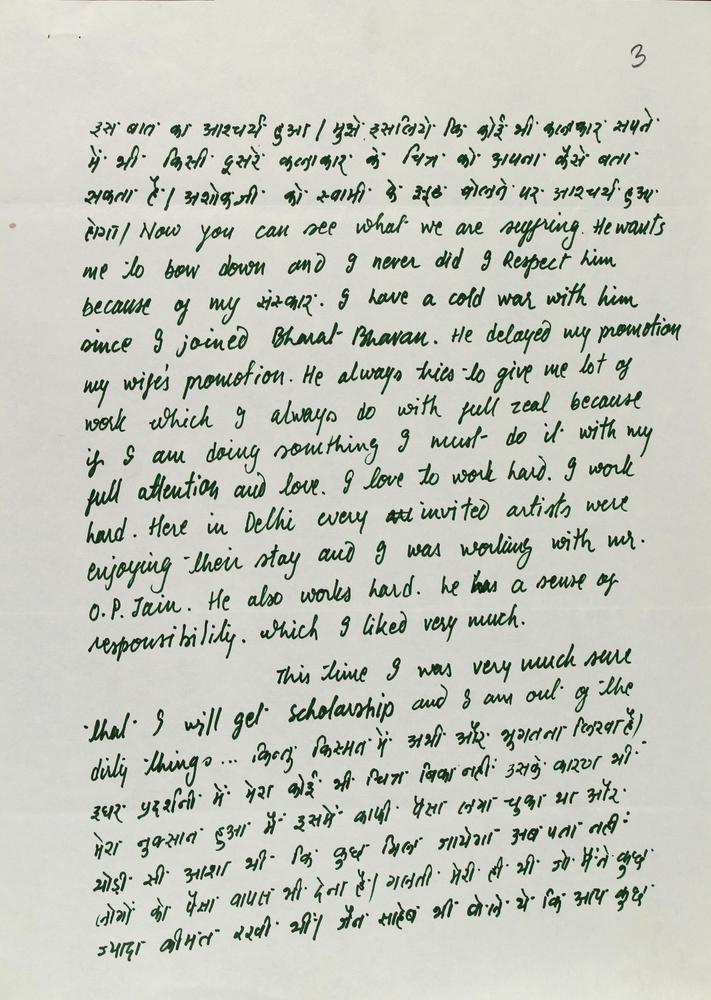 3
इस बात का आश्चर्य हुआ / मुझे इसलिये कि कोई भी कलाकार सपने
में भी किसी दूसरे कलाकार के चित्र को अपना कैसे बता
सकता है / अशोकजी को स्वामी के झूठ बोलने पर आश्चर्य हुआ
होगा / Now you can see what we are suffring. He wants
me to bow down and I never did I Respect him
because of my संस्कार. I have a cold war with him
since I joined Bharat Bhavan. He delayed my promotion
my wife's promotion. He always tries to give me lot of
work which I always do with full zeal because
if I am doing something I must do it with my
full attention and love. I love to work hard. I work
hard. Here in Delhi every invited artists were
enjoying their stay and I was working with mr.
O.P. Jain. He also works hard. he has a sense of
responsibility. which I liked very much.
This time I was very much sure
that I will get scholarship and I am out of the
dirty things... किन्तु किस्मत में अभी और भुगतना लिखा है /
इधर प्रदर्शनी में मेरा कोई भी चित्र बिका नहीं उसके कारण भी
मेरा नुकसान हुआ मैं इसमें काफी पैसा लगा चुका था और
थोड़ी सी आशा थी कि कुछ मिल जायेगा अब पता नहीं
लोगों को पैसा वापस भी देना है / गलती मेरी ही थी जो मैंने कुछ
ज्यादा कीमत रखी थी / जैन साहेब भी बोले थे कि आप कुछ